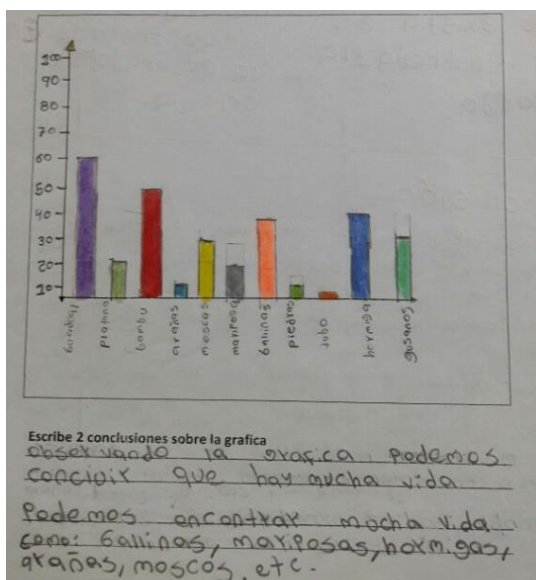 100
90
80
70
60
50
40
30
20
10
platano
bambu
arañas
moscas
mariposa
Gallinas
piedras
hormiga
gusanos
Escribe 2 conclusiones sobre la grafica
observando la grafica podemos
concluir que hay mucha vida
Podemos encontrar mucha vida
como: Gallinas, mariposas, hormigas,
arañas, moscos, etc.